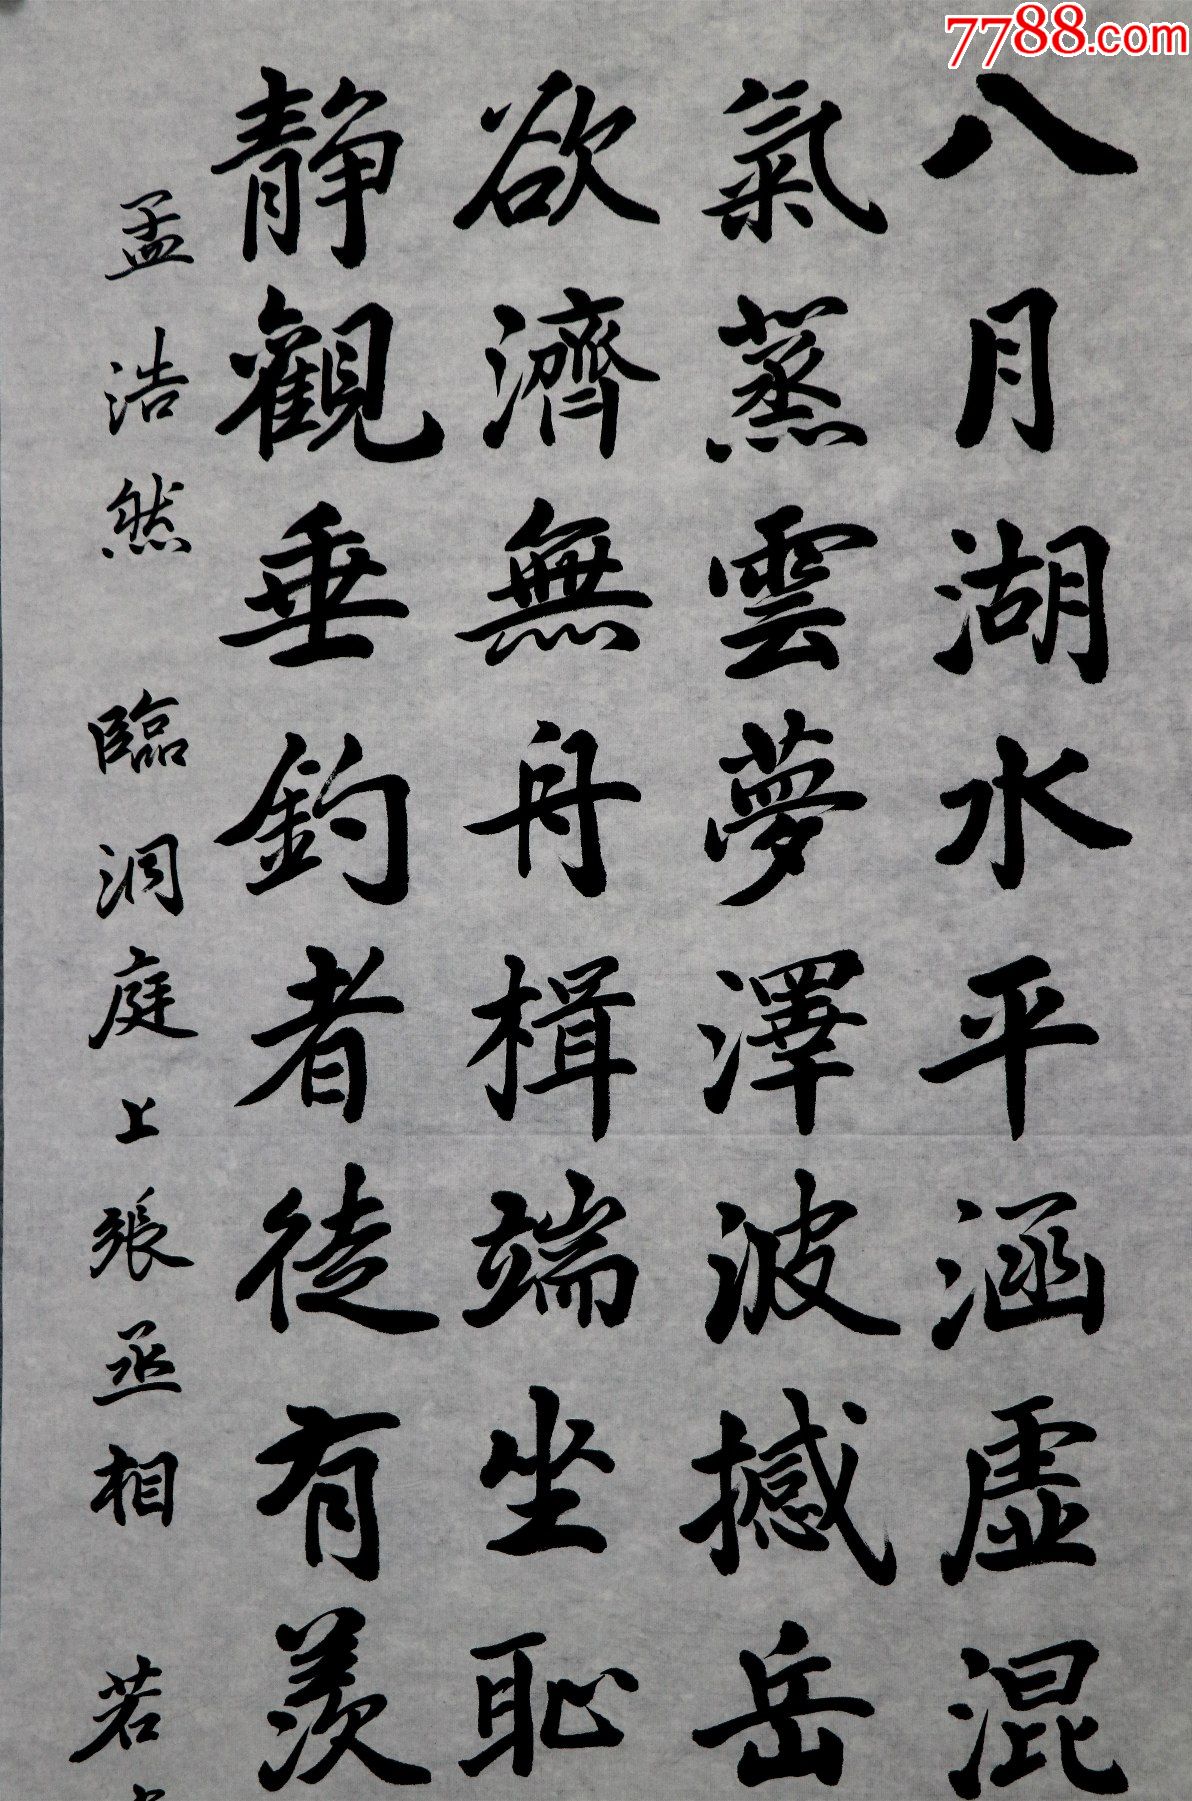 7788.com
八月湖水平涵虛混
氣蒸雲夢澤波撼岳
欲濟無舟楫端坐恥
靜觀垂釣者徒有羨
孟浩然 臨洞庭上張丞相 若